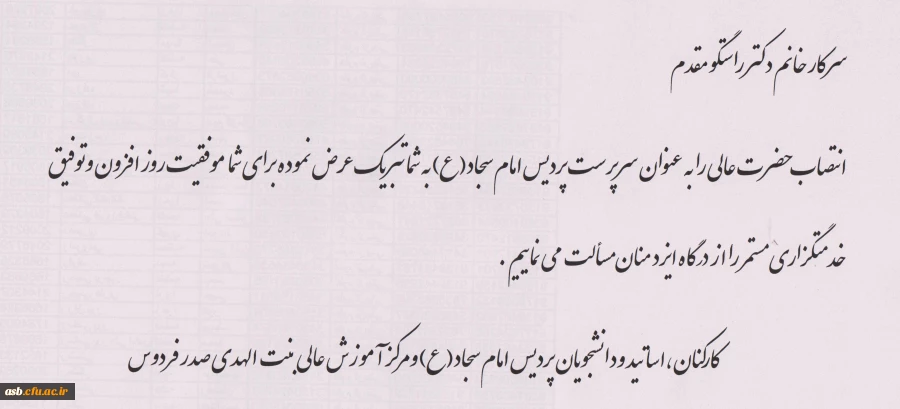 سرکار خانم دکتر راستگو مقدم
انتصاب حضرت عالی را به عنوان سرپرست پردیس امام سجاد(ع) به شما تبریک عرض نموده برای شما موفقیت روز افزون و توفیق
خدمتگزاری مستمر را از درگاه ایزد منان مسألت می نماییم .
کارکنان ، اساتید و دانشجویان پردیس امام سجاد(ع) و مرکز آموزش عالی بنت الهدی صدر فردوس
asb.cfu.ac.ir